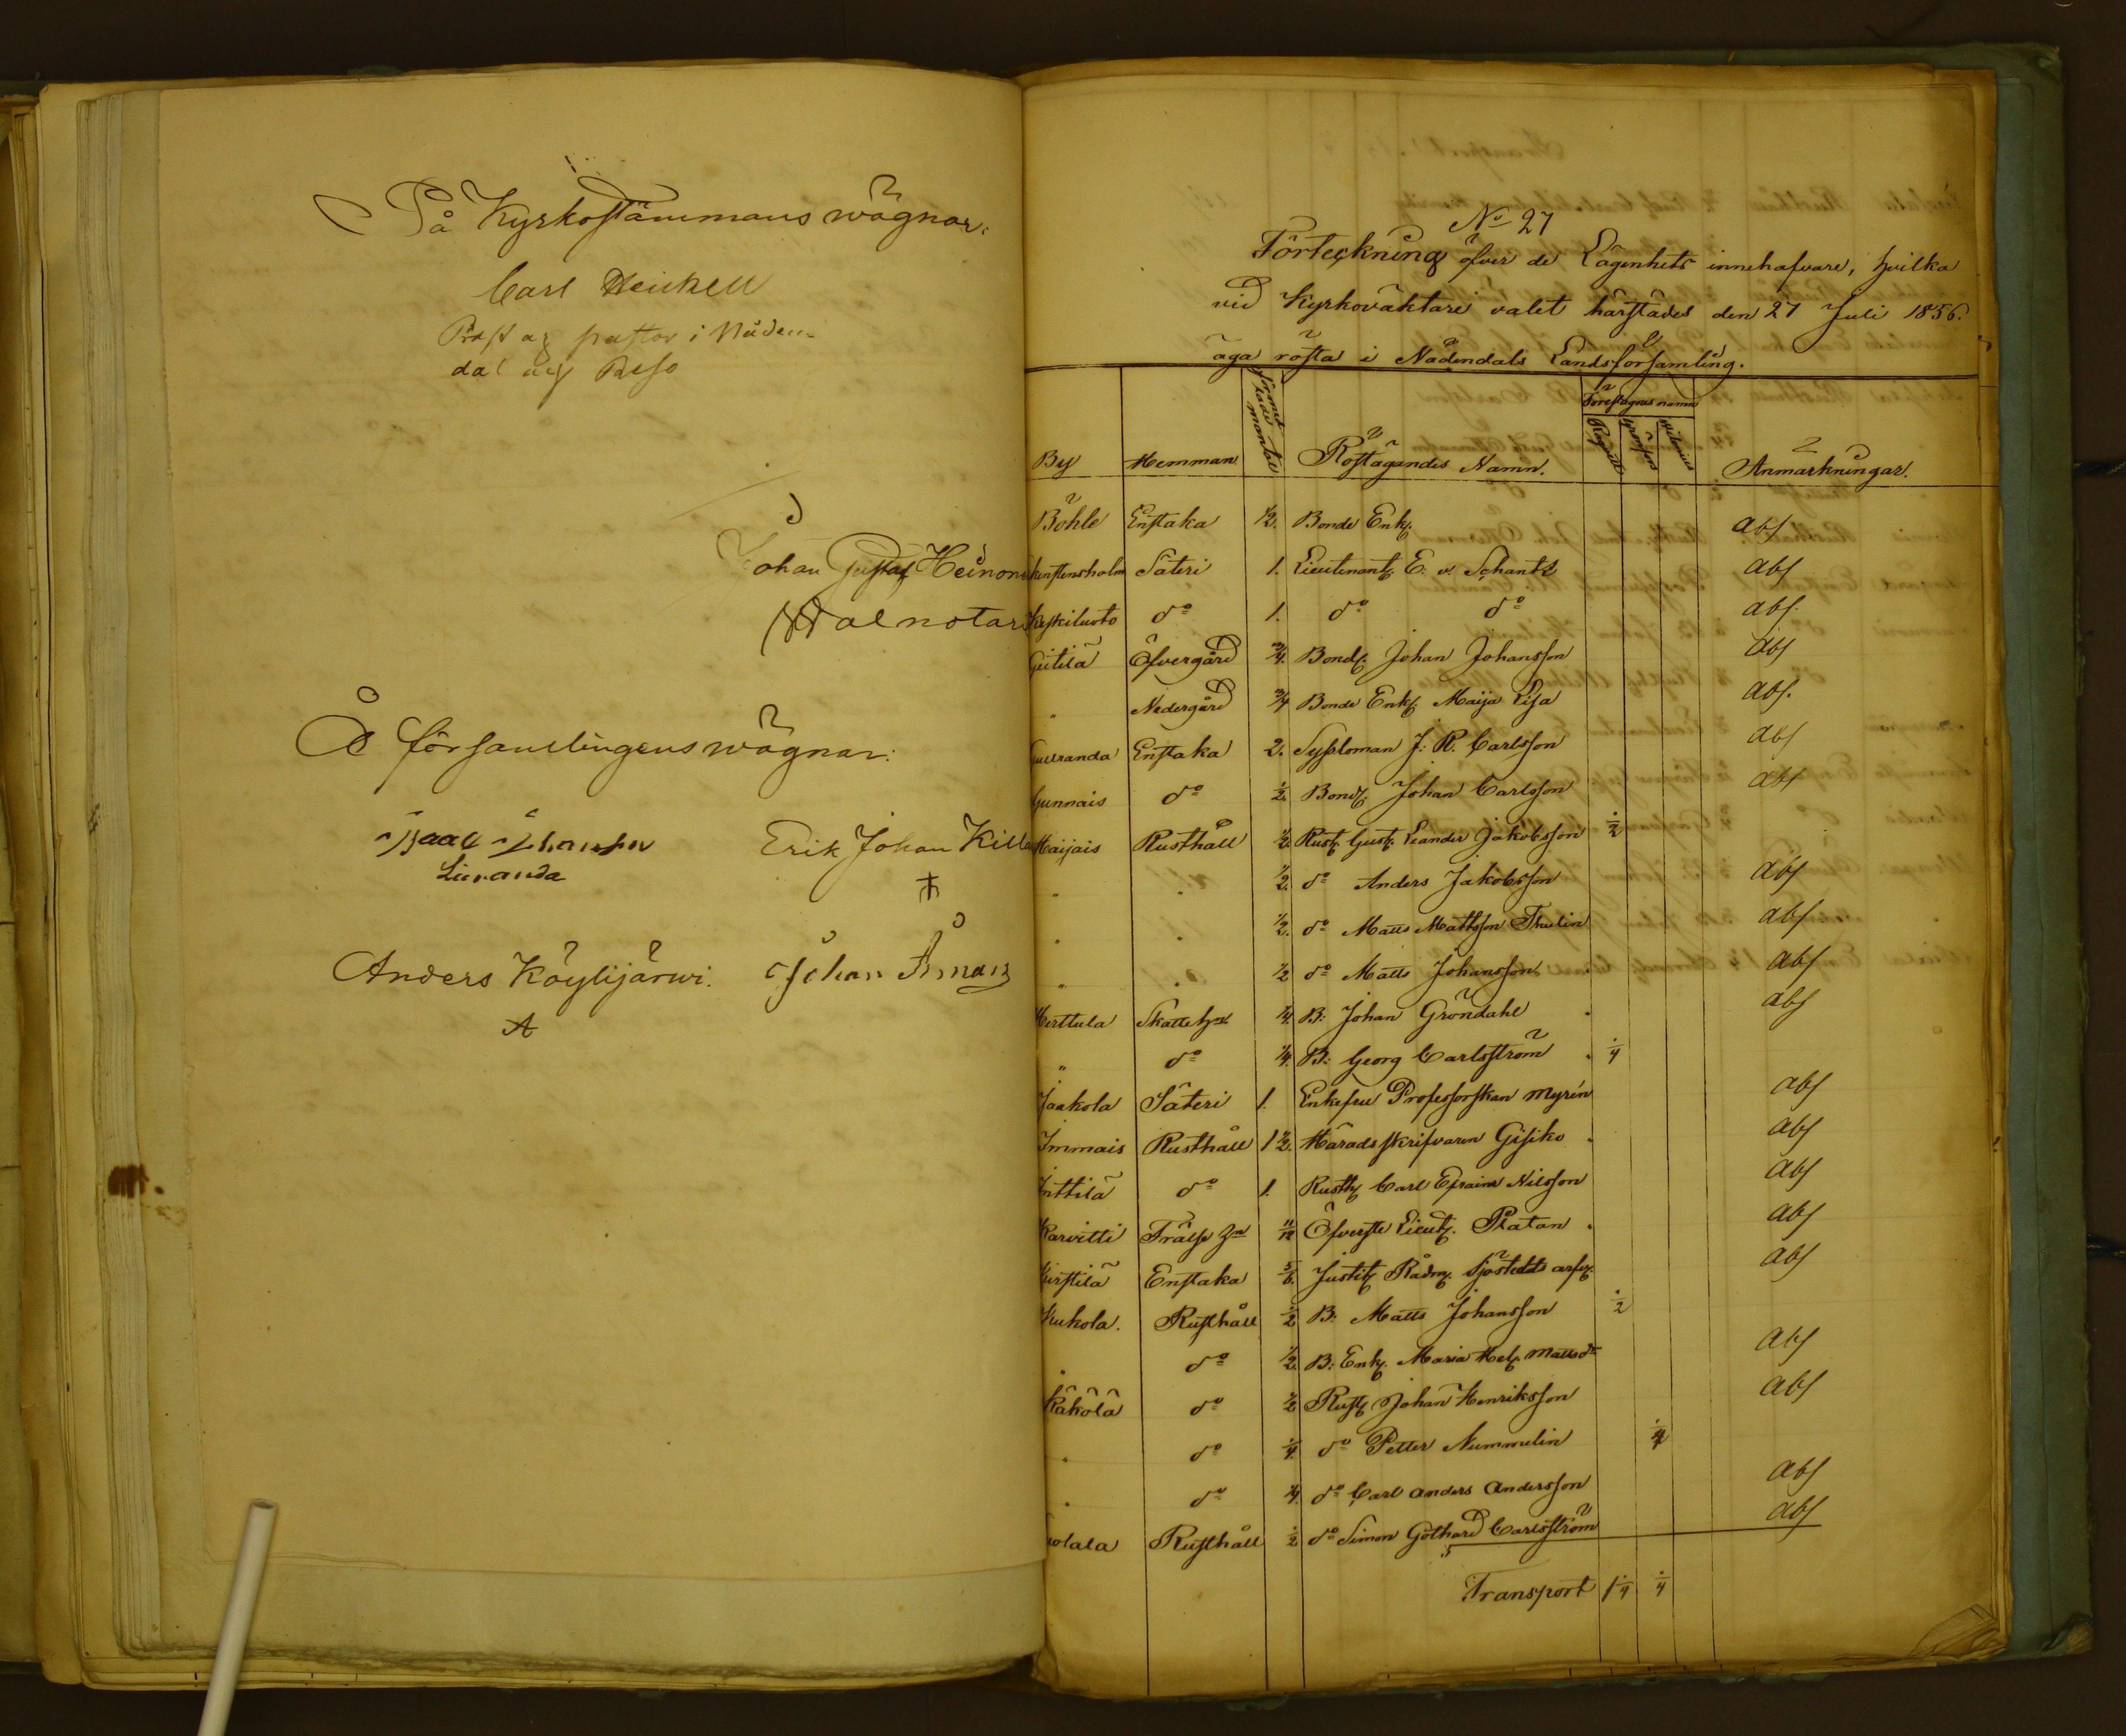 På Kyrkostämmans wägnar:
Carl Heickell
Prost og pastor i Nåden-
dal och Reso
Johan Gustaf Heinone
Walnotari
Å församlingens wägnar:
Isaac Johansson Erik Johan Killa
Livranda
Anders Köylijärwi. Johan Åman
A
No 27
Förteckning öfver de Lägenhets innehafvare, hvilka
vid Kyrkoväktare valet härstädes den 27 Juli 1856.
äga rösta i Nådendals Landsförsamling.
By Hemman Röstägandes Namn. Föreslagnes namn Anmärkningar.
Böhle Enstaka 1/2. Bonde Enk. abs
Sateri 1. Lieutenant E. v. Schantz abs
do 1. do do abs.
Öfvergård 3/4. Bond. Johan Johansson abs
" Nedergård 3/4 Bonde Enk. Maija Lisa abs.
Enstaka 2. Syssloman J: R. Carlsson abs
Gunnais do 1/2. Bond. Johan Carlsson abs
Maijais Rusthåll 1/2. Rust. Gust. Leander Jakobsson 1/2
" " 1/2. do Anders Jakobsson abs
" " 1/2. do Matts Mattsson Thulin abs
" " 1/2 do Matts Johansson abs
Herttula Skatte hn 1/4. B: Johan Gröndahl abs
" do 1/4. B: Georg Carlström 1/4
Jaakola Säteri 1. Enkefru Professorskan Myrén abs
Immais Rusthåll 1 1/2. Häradsskrifvaren Gisiko abs
Inttilä do 1. Rusth. Carl Efraim Nilsson abs
Karvitti Frälse hn 11/12 Öfverste Lieut. Platan abs
Kirstilä Enstaka 5/6. Justit. Rådm. Sjöstedts arfv. abs
Kukola. Rusthåll 1/2 B: Matts Johansson 1/2
" do 1/2. B: Enk. Maria Hel. Mattsdr abs
Käkölä do 1/2 Rust. Johan Henriksson abs
" do 1/4. do Petter Nummelin 1/4
" do 1/4. do Carl Anders Andersson abs
Rusthåll 1/2 do Simon Gothard Carlström abs
Transport 1 1/4 1/4